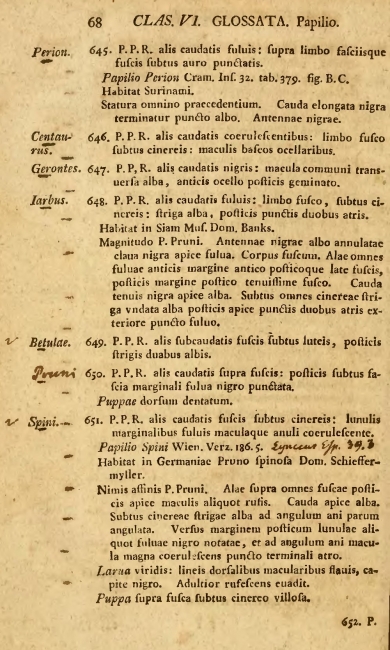 68 CLAS. VI. GLOSSATA. Papilio.
Perion. 645. P. P. R. alis caudatis fuluis: supra limbo fasciisque
fuscis subtus auro punctatis.
Papilio Perion Cram. Ins. 32. tab. 379. fig. B. C.
Habitat Surinami.
Statura omnino praecedentium. Cauda elongata nigra
terminatur puncto albo. Antennae nigrae.
Centau- 646. P. P. R. alis caudatis coerulescentibus: limbo fusco
rus. subtus cinereis: maculis baseos ocellaribus.
Gerontes. 647. P. P. R. alis caudatis nigris: macula communi trans-
uersa alba, anticis ocello posticis geminato.
Iarbus. 648. P. P. R. alis caudatis fuluis: limbo fusco, subtus ci-
nereis: striga alba, posticis punctis duobus atris.
Habitat in Siam Mus. Dom. Banks.
Magnitudo P. Pruni. Antennae nigrae albo annulatae
claua nigra apice fulua. Corpus fuscum. Alae omnes
fuluae anticis margine antico posticoque late fuscis,
posticis margine postico tenuissime fusco. Cauda
tenuis nigra apice alba. Subtus omnes cinereae stri-
ga vndata alba posticis apice punctis duobus atris ex-
teriore puncto fuluo.
Betulae. 649. P. P. R. alis subcaudatis fuscis subtus luteis, posticis
strigis duabus albis.
Pruni 650. P. P. R. alis caudatis supra fuscis: posticis subtus fa-
scia marginali fulua nigro punctata.
Puppae dorsum dentatum.
Spini. 651. P. P. R. alis caudatis fuscis subtus cinereis: lunulis
marginalibus fuluis maculaque anuli coerulescente.
Papilio Spini Wien. Verz. 186. 5. Lynceus Esp. 39. 3
Habitat in Germaniae Pruno spinosa Dom. Schieffer-
myller.
Nimis affinis P. Pruni. Alae supra omnes fuscae posti-
cis apice maculis aliquot rufis. Cauda apice alba.
Subtus cinereae strigae alba ad angulum ani parum
angulata. Versus marginem posticum lunulae ali-
quot fuluae nigro notatae, et ad angulum ani macu-
la magna coerulescens puncto terminali atro.
Larua viridis: lineis dorsalibus macularibus flauis, ca-
pite nigro. Adultior rufescens euadit.
Puppa supra fusca subtus cinereo villosa.
652. P.